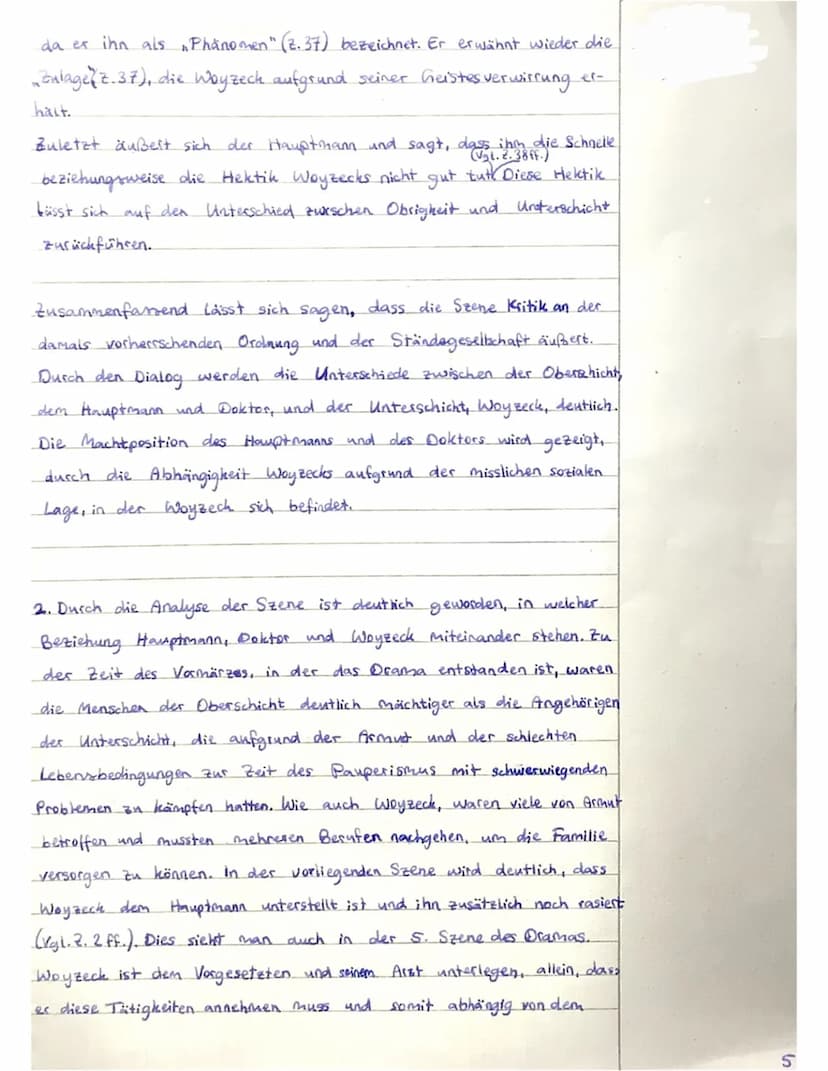 da er ihn als „Phänomen" (Z.37) bezeichnet. Er erwähnt wieder die
„Zulage" (Z.37), die Woyzeck aufgrund seiner Geistesverwirrung er-
hält.
Zuletzt äußert sich der Hauptmann und sagt, dass ihm die Schnelle
(Vgl. Z. 38 ff.)
beziehungsweise die Hektik Woyzecks nicht gut tut. Diese Hektik
lässt sich auf den Unterschied zwischen Obrigkeit und Unterschicht
zurückführen.
Zusammenfassend lässt sich sagen, dass die Szene Kritik an der
damals vorherrschenden Ordnung und der Ständegesellschaft äußert.
Durch den Dialog werden die Unterschiede zwischen der Oberschicht,
dem Hauptmann und Doktor, und der Unterschicht, Woyzeck, deutlich.
Die Machtposition des Hauptmanns und des Doktors wird gezeigt,
durch die Abhängigkeit Woyzecks aufgrund der misslichen sozialen
Lage, in der Woyzeck sich befindet.
2. Durch die Analyse der Szene ist deutlich geworden, in welcher
Beziehung Hauptmann, Doktor und Woyzeck miteinander stehen. Zu
der Zeit des Vormärzes, in der das Drama entstanden ist, waren
die Menschen der Oberschicht deutlich mächtiger als die Angehörigen
der Unterschicht, die aufgrund der Armut und der schlechten
Lebensbedingungen zur Zeit des Pauperismus mit schwerwiegenden
Problemen zu kämpfen hatten. Wie auch Woyzeck, waren viele von Armut
betroffen und mussten mehreren Berufen nachgehen, um die Familie
versorgen zu können. In der vorliegenden Szene wird deutlich, dass
Woyzeck dem Hauptmann unterstellt ist und ihn zusätzlich noch rasiert
(Vgl. Z. 2 ff.). Dies sieht man auch in der 5. Szene des Dramas.
Woyzeck ist dem Vorgesetzten und seinem Arzt unterlegen, allein, dass
er diese Tätigkeiten annehmen muss und somit abhängig von dem
5